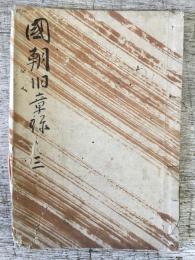 國朝旧章録 三